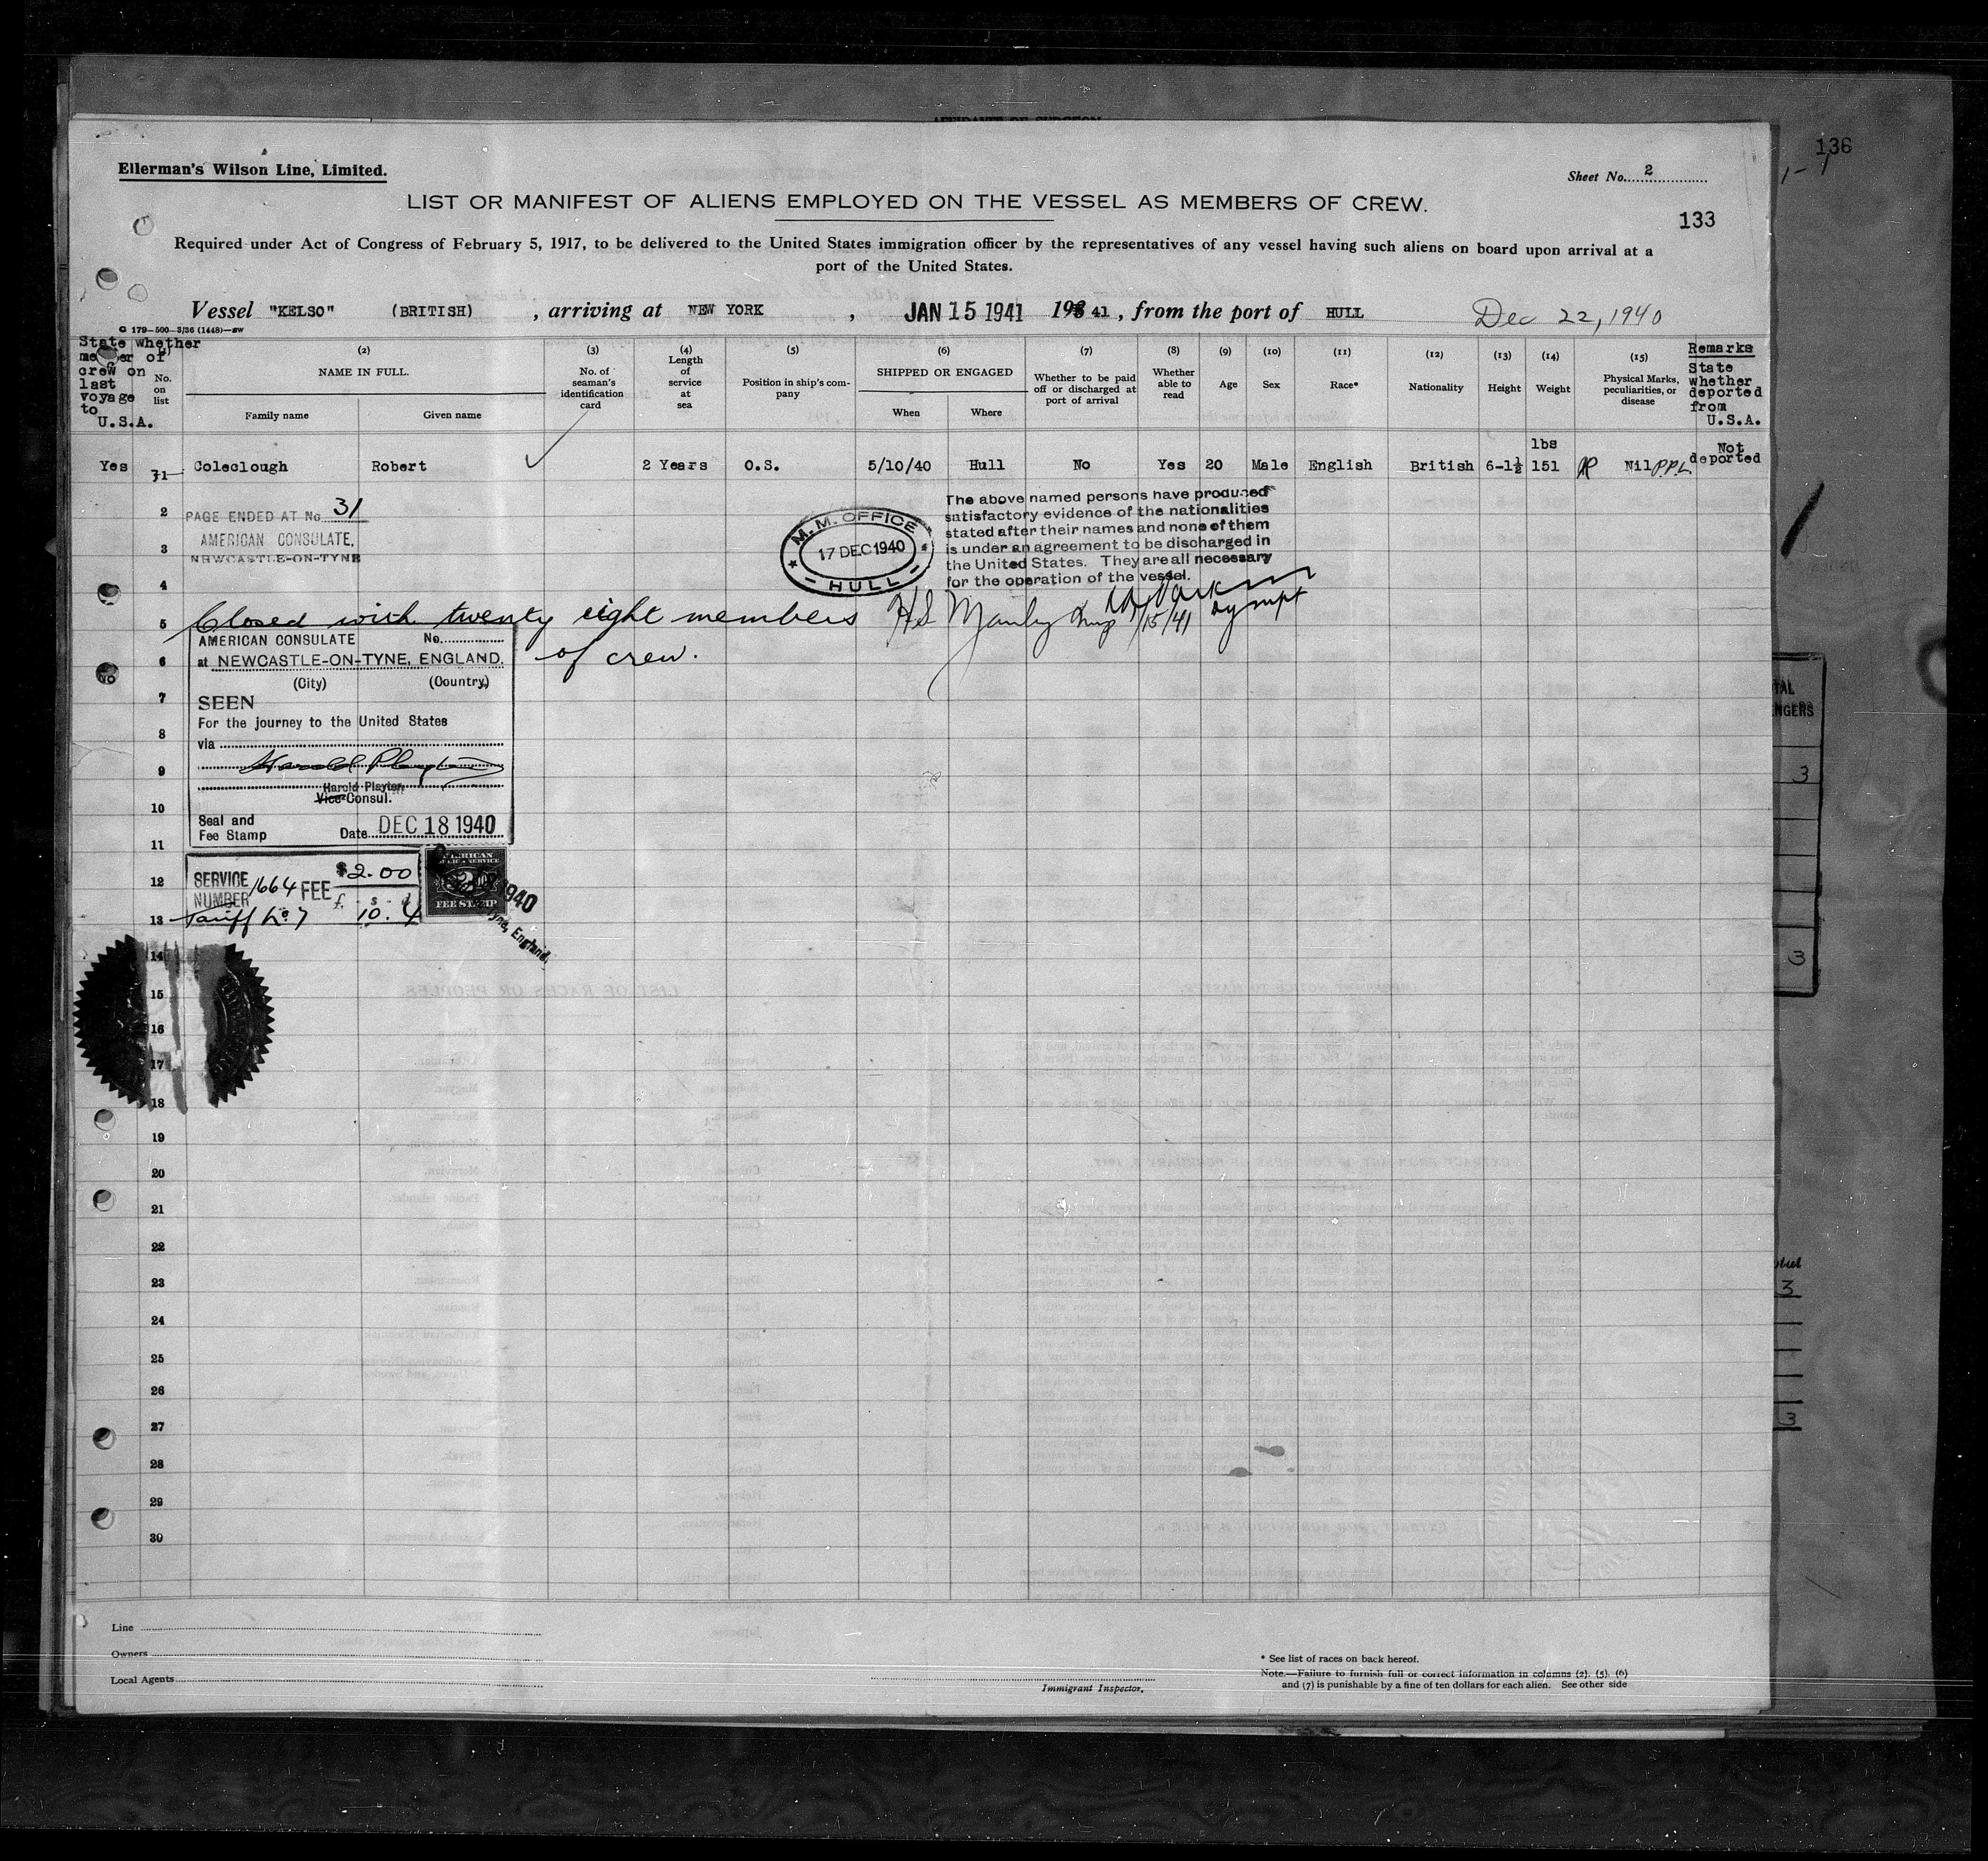 136
Ellerman's Wilson Line, Limited.
Sheet No. 2
LIST OR MANIFEST OF ALIENS EMPLOYED ON THE VESSEL AS MEMBERS OF CREW.
133
Required under Act of Congress of February 5, 1917, to be delivered to the United States immigration officer by the representatives of any vessel having such aliens on board upon arrival at a
port of the United States.
Vessel "KELSO" (BRITISH), arriving at NEW YORK, JAN 15 1941 193 41, from the port of HULL Dec 22, 1940
G 179-500-3/36 (1448)-SW
State whether member of crew on last voyage to U.S.A.
(1) No. on list
(2) NAME IN FULL.
Family name
Given name
(3) No. of seaman's identification card
(4) Length of service at sea
(5) Position in ship's company
(6) SHIPPED OR ENGAGED
When
Where
(7) Whether to be paid off or discharged at port of arrival
(8) Whether able to read
(9) Age
(10) Sex
(11) Race*
(12) Nationality
(13) Height
(14) Weight
(15) Physical Marks, peculiarities, or disease
Remarks
State whether deported from U.S.A.
lbs
Yes 31 Coleclough Robert 2 Years O.S. 5/10/40 Hull No Yes 20 Male English British 6-1½ 151 Nil P.P.L. Not deported
2 PAGE ENDED AT No 31
AMERICAN CONSULATE,
3 NEWCASTLE-ON-TYNE
M.M. OFFICE
17 DEC 1940
HULL
The above named persons have produced
satisfactory evidence of the nationalities
stated after their names and none of them
is under an agreement to be discharged in
the United States. They are all necessary
for the operation of the vessel.
4
5 Closed with twenty eight members
of crew.
H.S. Manley 1/15/41
AMERICAN CONSULATE No.
6 at NEWCASTLE-ON-TYNE, ENGLAND.
(City) (Country)
7 SEEN
For the journey to the United States
8 via
9 Harold Playter
Harold Playter
Vice Consul.
10
Seal and
Fee Stamp Date DEC 18 1940
11
12 SERVICE NUMBER 1664 FEE $2.00
£ - s - d
13 Tariff No 7 10. 4
AMERICAN
FEE STAMP
1940
Tyne, England.
14
15
16
17
18
19
20
21
22
23
24
25
26
27
28
29
30
Line
Owners
Local Agents
Immigrant Inspector.
* See list of races on back hereof.
Note.—Failure to furnish full or correct information in columns (2), (5), (6)
and (7) is punishable by a fine of ten dollars for each alien. See other side
3
3
3
3